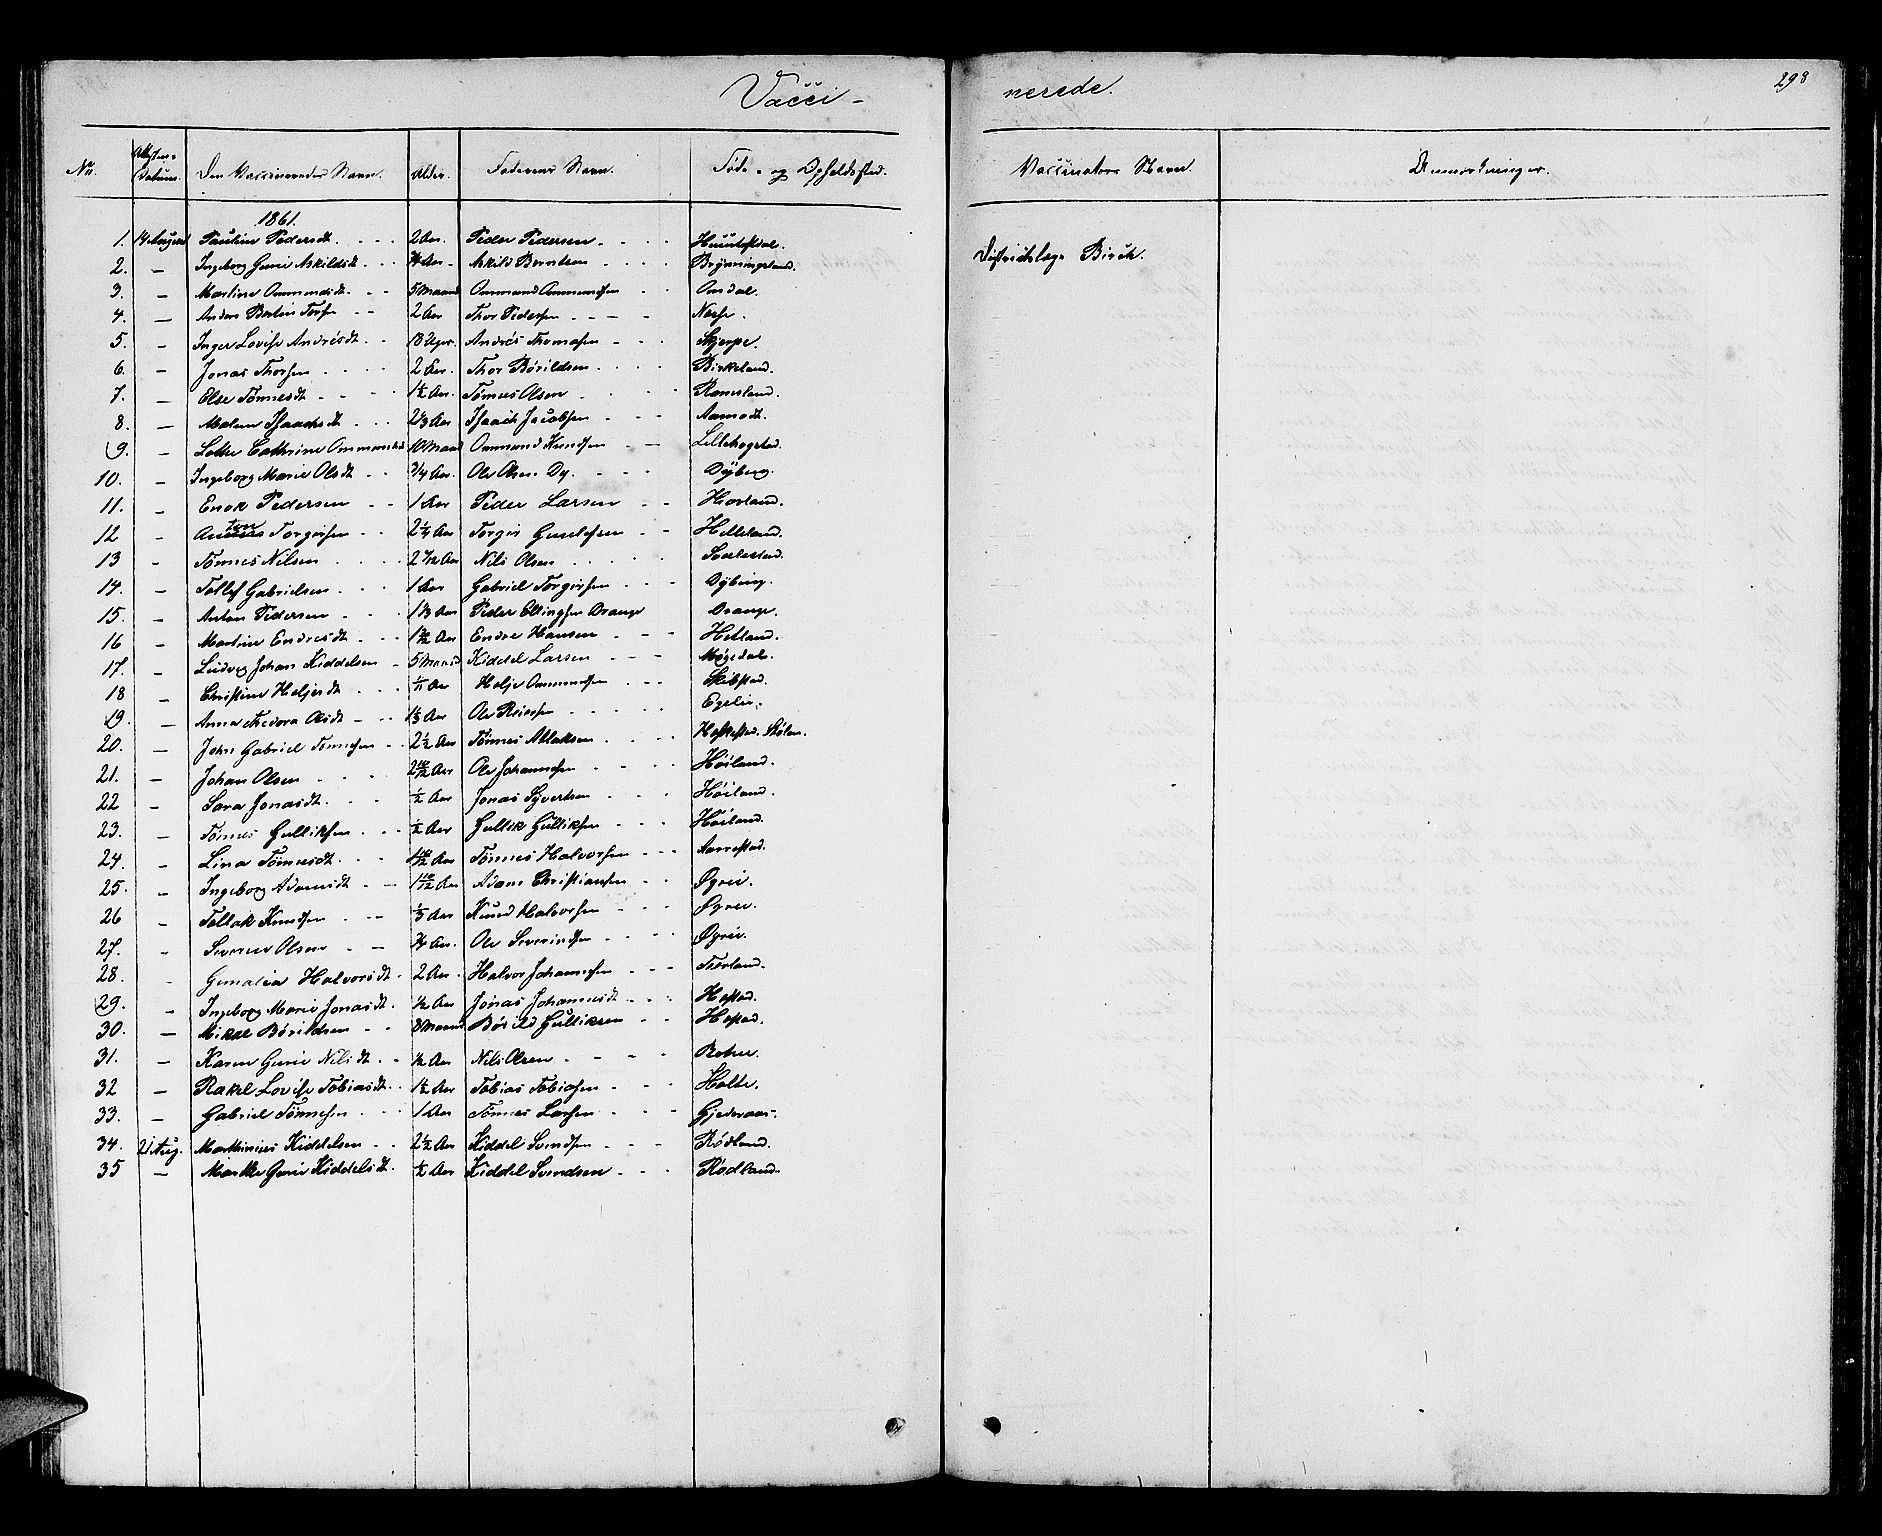 Vacci-
nerede.
298
No. Attestens Datum. Den Vaccineredes Navn. Alder. Faderens Navn. Føde- og Opholdssted. Vaccinators Navn. Anmærkninger.
1861.
1. 14 August Pauline Pedersdt. 2 Aar. Peder Pedersen Districtslæge Birch.
2. — Ingeborg Gurie Askildsdt. Aar Askild Berntsen Brynningsland.
3. — Martine Ommundsdt. 5 Maaned Ommund Ommundsen Omdal.
4. — Anders Bertin Torsen 2 Aar Thor Pedersen
5. — Inger Lovise Andrésdt. Andrés Thomassen Skjerpe.
6. — Jonas Thorsen 2 Aar. Thor Börildsen Birkeland.
7. — Else Tönnesdt 1½ Aar. Tönnes Olsen Ramsland.
8. — Malene Isaachsdt 2⅓ Aar Isaach Jacobsen Aamodt.
9. — Cathrine Ommundsdt 10 Maaned Ommund Knudsen Lillehogstad.
10. — Ingeborg Marie Olsdt ¾ Aar. Ole Olsen Dy. Dyberg.
11. — Enok Pedersen 1 Aar Peder Larsen Hovland.
12 — Torgersen 2¼ Aar Torger Gunlefsen Helleland.
13 — Tönnes Nilsen 2 7/12 Aar Nils Olsen
14. — Tollef Gabrielsen 1 Aar Gabriel Torgersen Dybing.
15. — Anton Pedersen 1⅓ Aar Peder Ellingsen Drange Drange.
16 — Martine Endresdt Aar Endre Hansen Helland.
17. — Ludvig Johan Kiddelsen 5 Maaned Kiddel Larsen Mögedal.
18 — Christine Heljesdt Aar Helje Ommundsen Skibstad.
19. — Anna Thedora Olsdt 1⅓ Aar Ole Reiersen Egelie.
20. — John Gabriel Tönnesen 2½ Aar Tönnes Atlaksen
21. — Johan Olsen 2 10/12 Aar Ole Johannesen Höiland.
22 — Sara Jonasdt. ½ Aar Jonas Syvertsen Höiland.
23. — Tönnes Gulliksen ½ Aar Gullik Gulliksen Höiland.
24. — Lina Tönnesdt. Aar Tönnes Halvorsen Aarrestad.
25. — Ingeborg Adamsdt 1 10/12 Aar Adam Christiansen Öyrei.
26 — Tollak Knudsen ⅓ Aar Knud Halvorsen Öyrei.
27. — Severine Olsen ¾ Aar. Ole Severindsen Öyrei.
28. — Halvorsdt 2 Aar. Halvor Johannesen
29. — Ingeborg Marie Jonasdt. ½ Aar Jonas Johannesdt Hestad.
30. — Mikal Börildsen 8 Maaned Börild Gulliksen Hestad.
31. — Karen Gurie Nilsdt ½ Aar Nils Olsen
32 — Rakel Lovise Tobiasdt. 1½ Aar Tobias Tobiasen Holte.
33. — Gabriel Tönnesen 1 Aar Tönnes Larsen Gjederaas.
34. 21 Aug. Mathinius Kiddelsen 2½ Aar Kiddel Svendsen Rödland.
35 — Marthe Gurie Kiddelsdt. ½ Aar Kiddel Svendsen Rödland.